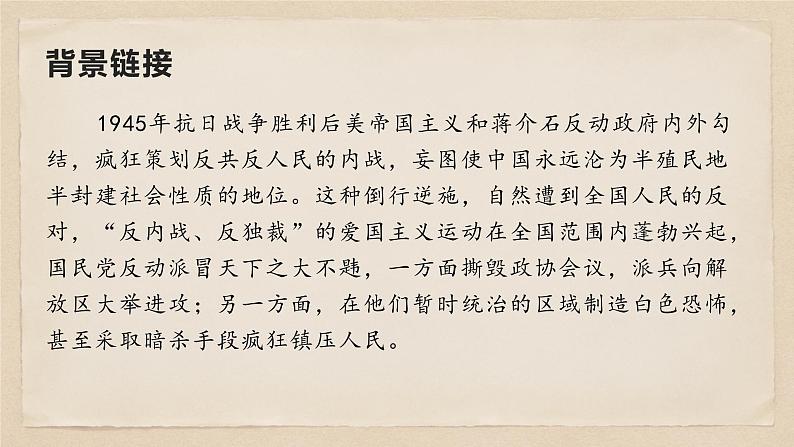 背景链接
1945年抗日战争胜利后美帝国主义和蒋介石反动政府内外勾
结，疯狂策划反共反人民的内战，妄图使中国永远沦为半殖民地
半封建社会性质的地位。这种倒行逆施，自然遭到全国人民的反
对，“反内战、反独裁”的爱国主义运动在全国范围内蓬勃兴起，
国民党反动派冒天下之大不韪，一方面撕毁政协会议，派兵向解
放区大举进攻；另一方面，在他们暂时统治的区域制造白色恐怖，
甚至采取暗杀手段疯狂镇压人民。